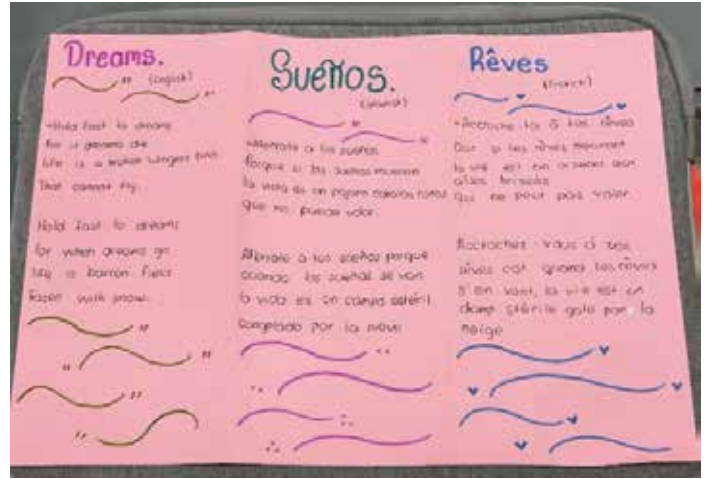 Dreams.
(English)
-Hold fast to dreams
For if dreams die
Life is a broken winged bird
That cannot fly.
Hold fast to dreams
for when dreams go
Life is barren field
Frozen with snow.
Sueños.
(Spanish)
a los sueños
Porque si los sueños mueren
la vida es un pajaro
Que no puede volar.
a los sueños porque
cuando los sueños se van
la vida es un campo estéril
Congelado por la nieve
Rêves
(French)
-Accroche-toi à tes rêves
Car si les rêves meurent
la vie est un oiseau aux
ailes brisées
qui ne peut pas voler.
Accrochez-vous à vos
rêves car quand les rêves
s'en vont, la vie est un
champ stérile gelé par la
neige